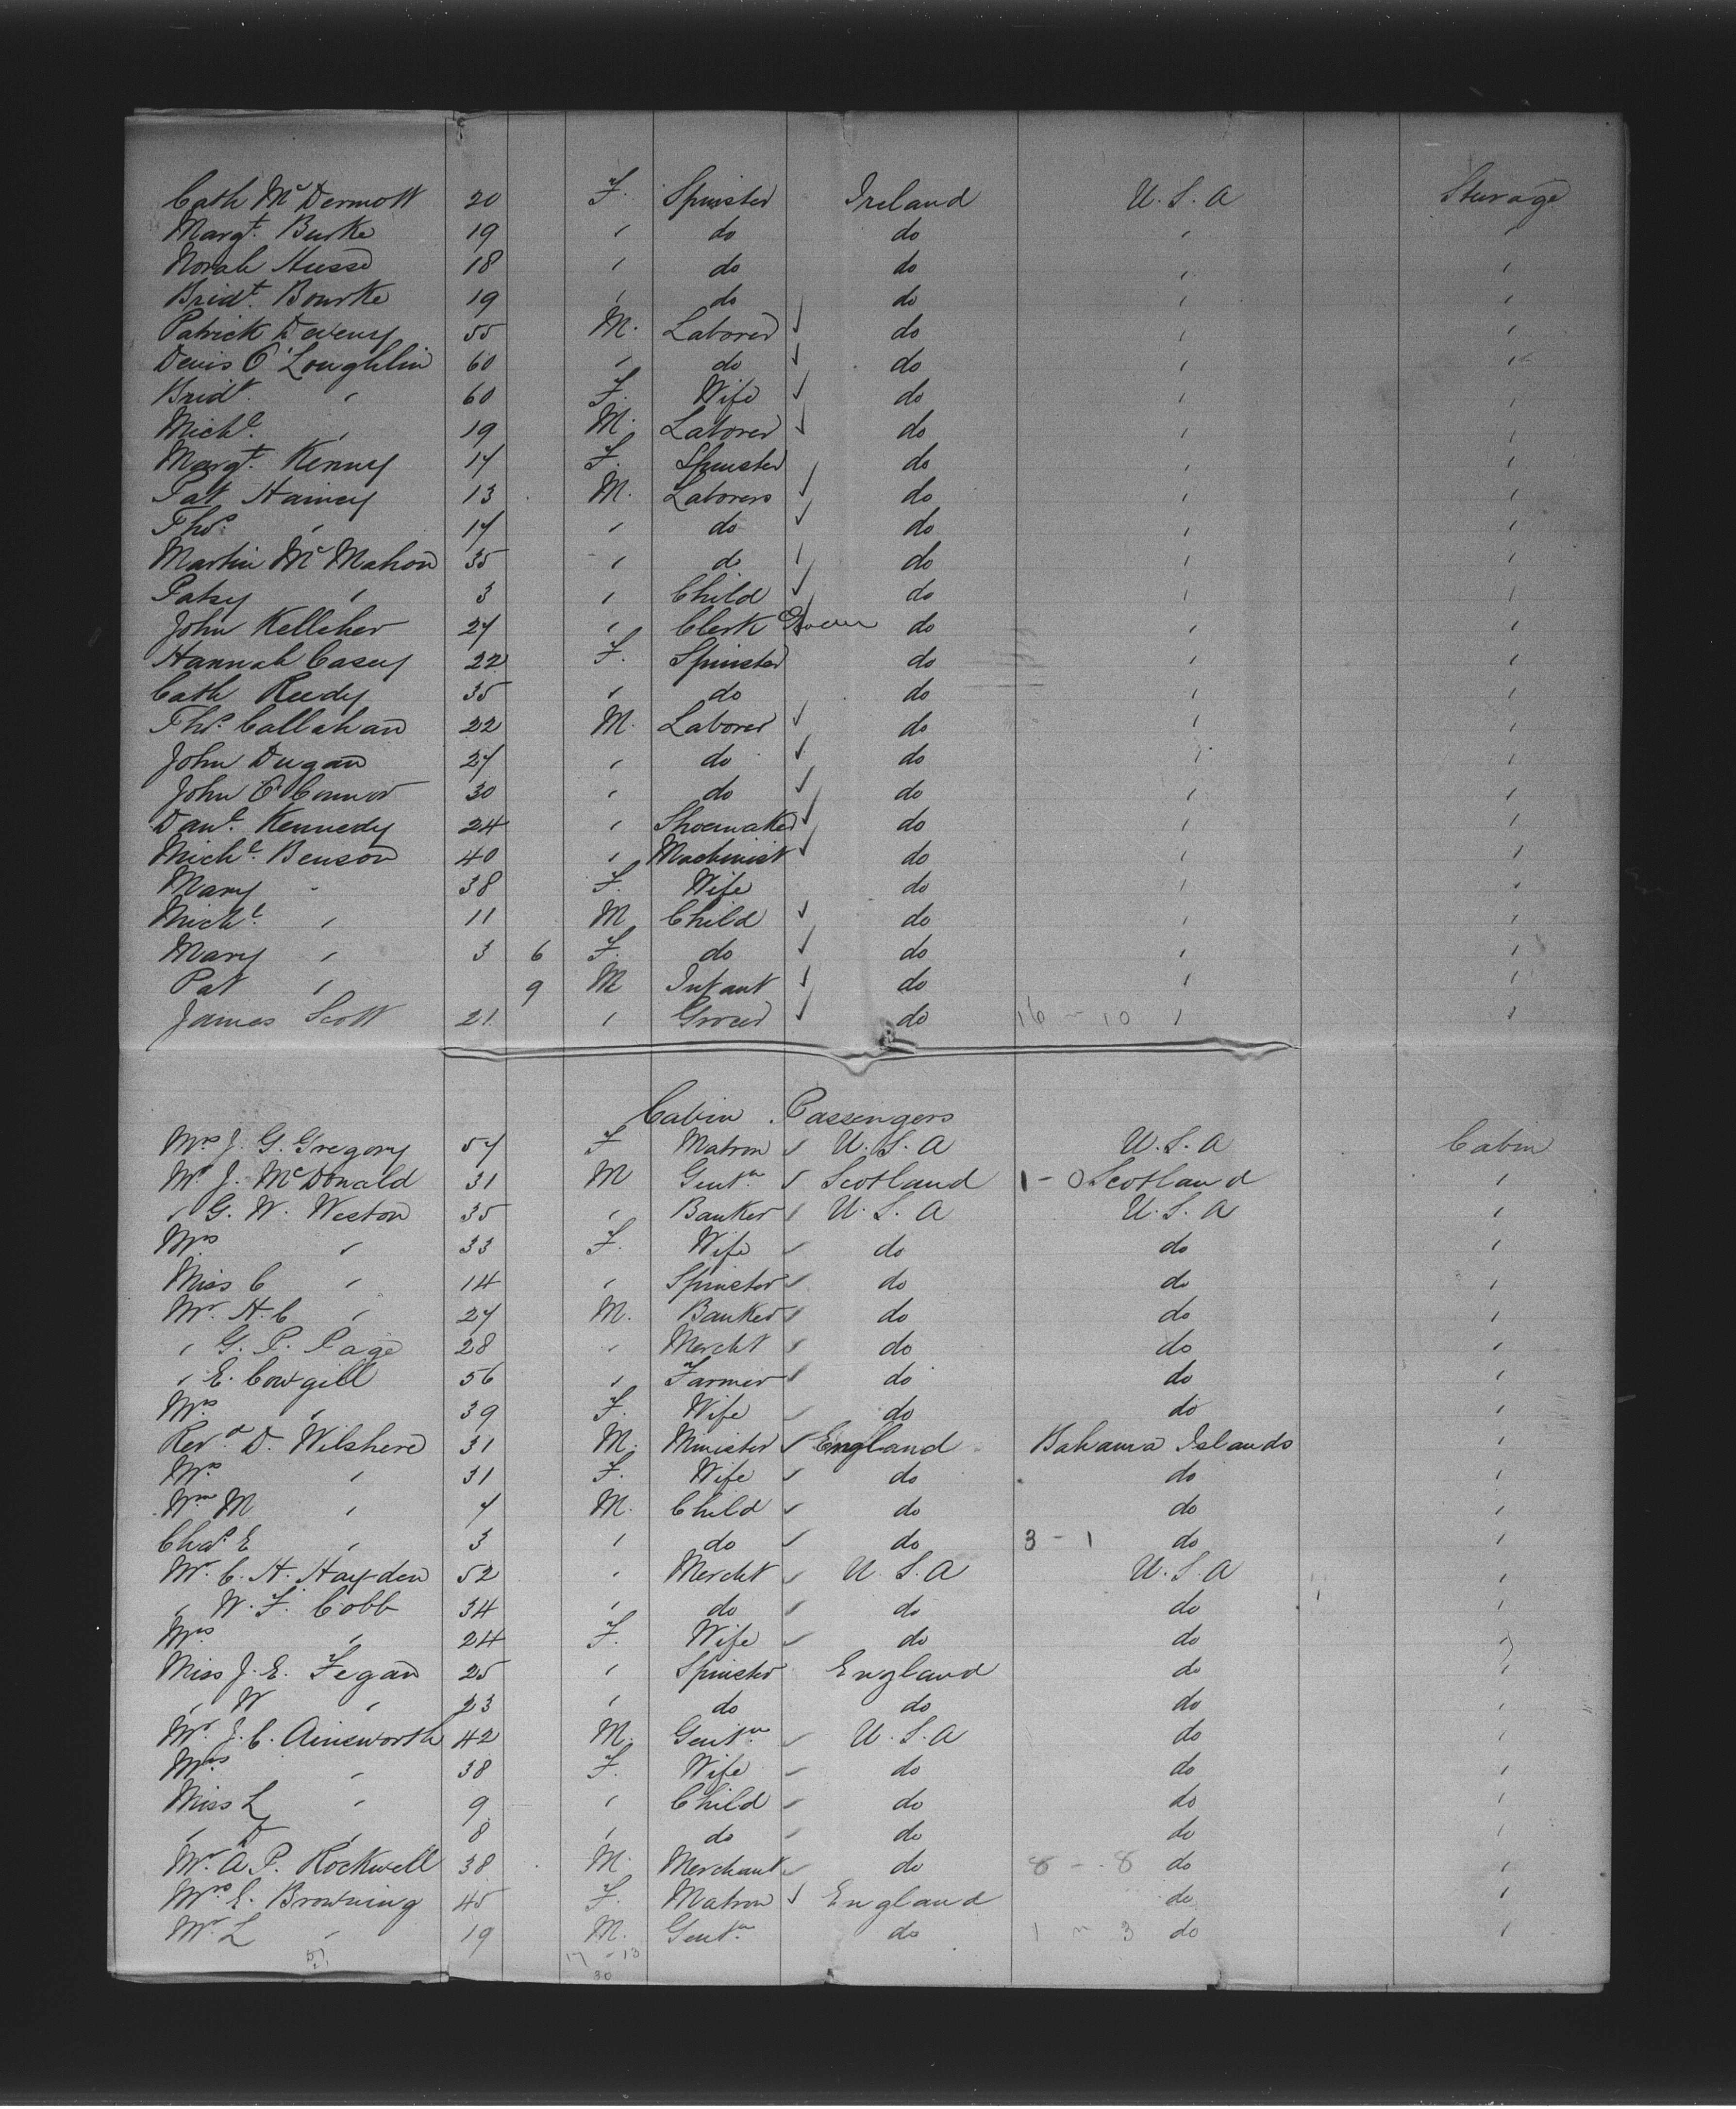 Cath McDermott 20 F. Spinster Ireland U.S.A Sterage
Margt. Burke 19 " do do " "
Norah Husse 18 " do do " "
Bridt. Bourke 19 " do do " "
Patrick Doveny 55 M. Laborer ✓ do " "
Denis O'Loughlin 60 " do ✓ do " "
Bridt. " 60 F. Wife ✓ do " "
Michl. " 19 M. Laborer ✓ do " "
Margt. Kenny 17 F. Spinster do " "
Pat Hainey 13 M. Laborers ✓ do " "
Thos. " 17 " do ✓ do " "
Martin McMahon 35 " do ✓ do " "
Patsy " 3 " Child ✓ do " "
John Kelleher 27 " Clerk do " "
Hannah Casey 22 F. Spinster do " "
Cath Reedy 35 " do do " "
Thos. Callahan 22 M. Laborer ✓ do " "
John Dugan 27 " do ✓ do " "
John O'Connor 30 " do ✓ do " "
Danl. Kennedy 24 " Shoemaker ✓ do " "
Michl. Benson 40 " Machinist ✓ do " "
Mary " 38 F. Wife do " "
Michl. " 11 M Child ✓ do " "
Mary " 3 6 F. do ✓ do " "
Pat " 9 M Infant ✓ do " "
James Scott 21 " Grocer ✓ do 16 - 10 " "
Cabin Passengers
Mrs J. G. Gregory 57 F Matron ✓ U.S.A U.S.A Cabin
Mr J. McDonald 31 M Gentn. ✓ Scotland 1 - 0 Scotland "
" G. W. Weston 35 " Banker ✓ U.S.A U.S.A "
Mrs " 33 F. Wife ✓ do do "
Miss C " 14 " Spinster ✓ do do "
Mr. H. C " 27 M. Banker ✓ do do "
" G. P. Page 28 " Mercht ✓ do do "
" E. Cowgill 56 " Farmer ✓ do do "
Mrs " 39 F. Wife ✓ do do "
Revd. D. Wilshere 31 M. Minister ✓ England Bahama Islands "
Mrs " 31 F. Wife ✓ do do "
Wm M " 7 M. Child ✓ do do "
Chas. E " 3 " do ✓ do 3 - 1 do "
Mr. C. H. Hayden 52 " Mercht ✓ U.S.A U.S.A "
" W. F. Cobb 34 " do ✓ do do "
Mrs " 24 F. Wife ✓ do do "
Miss J. E. Fegan 25 " Spinster England do "
" W " 23 " do do do "
Mr. J. C. Ainsworth 42 M. Gentn. ✓ U.S.A do "
Mrs " 38 F. Wife ✓ do do "
Miss L " 9 " Child ✓ do do "
" D " 8 " do ✓ do do "
Mr. A. P. Rockwell 38 M. Merchant ✓ do 8 - 8 do "
Mrs E. Browning 45 F. Matron ✓ England do "
Mr. L " 19 M. Gentn. do 1 - 3 do "
51 17 - 13
30